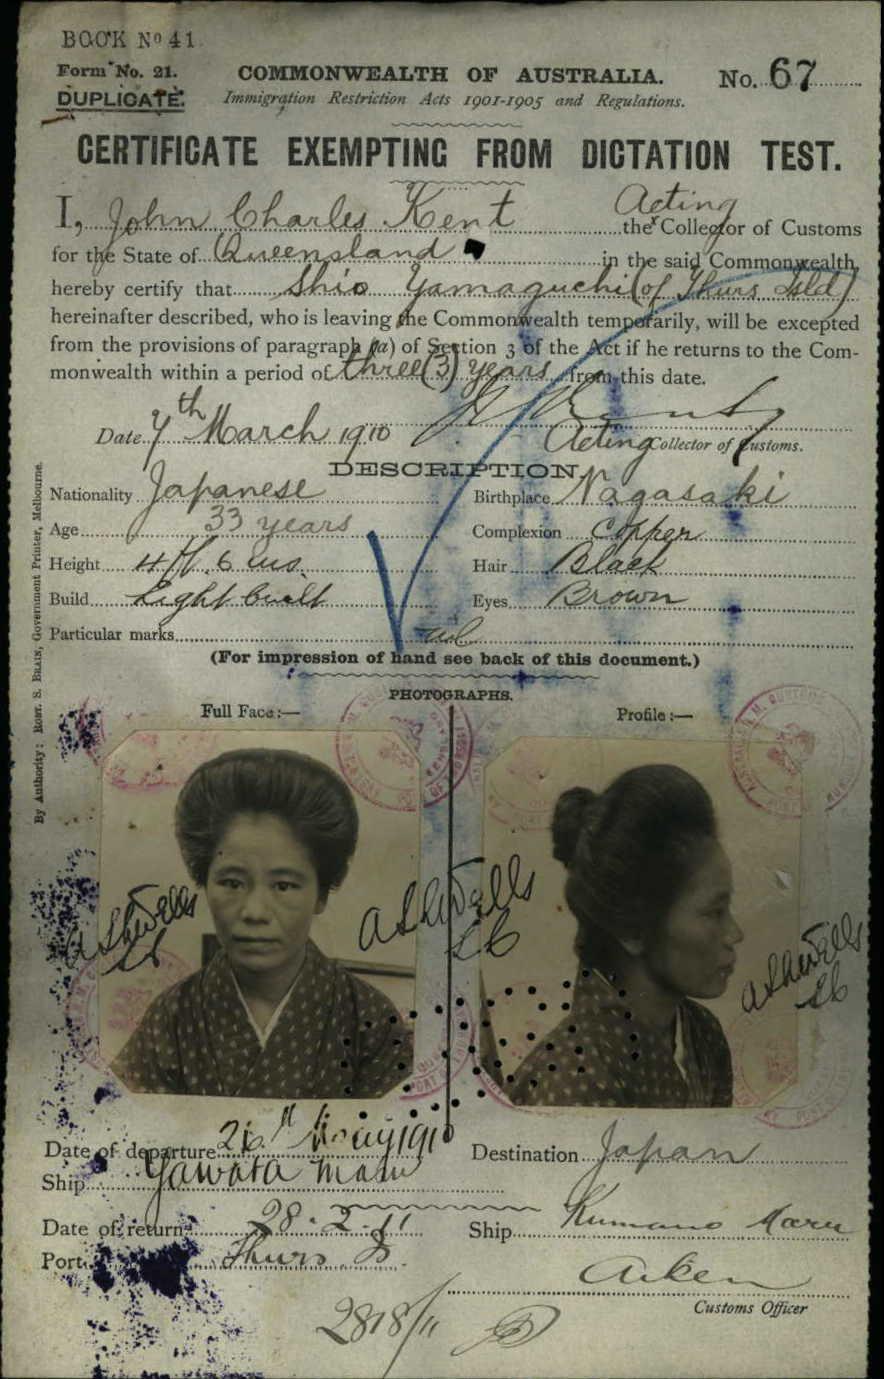 BOOK No 41
Form No. 21.
COMMONWEALTH OF AUSTRALIA.
No. 67
DUPLICATE.
Immigration Restriction Acts 1901-1905 and Regulations.
CERTIFICATE EXEMPTING FROM DICTATION TEST.
I, John Charles Kent Acting the Collector of Customs
for the State of Queensland in the said Commonwealth,
hereby certify that Shio Yamaguchi (of Thurs Isld)
hereinafter described, who is leaving the Commonwealth temporarily, will be excepted
from the provisions of paragraph (a) of Section 3 of the Act if he returns to the Com-
monwealth within a period of three (3) years from this date.
Date 7th March 1910
Acting Collector of Customs.
DESCRIPTION
Nationality Japanese
Birthplace Nagasaki
Age 33 years
Complexion Copper
Height 4 ft. 6 ins.
Hair Black
Build Light built
Eyes Brown
Particular marks
(For impression of hand see back of this document.)
PHOTOGRAPHS.
Full Face:—
Profile:—
By Authority: Robt. S. Brain, Government Printer, Melbourne.
Date of departure 26th 1910
Destination Japan
Ship Yawata Maru
Date of return 28.2.11
Ship Kumano Maru
Port Thurs Is
Aiken
Customs Officer